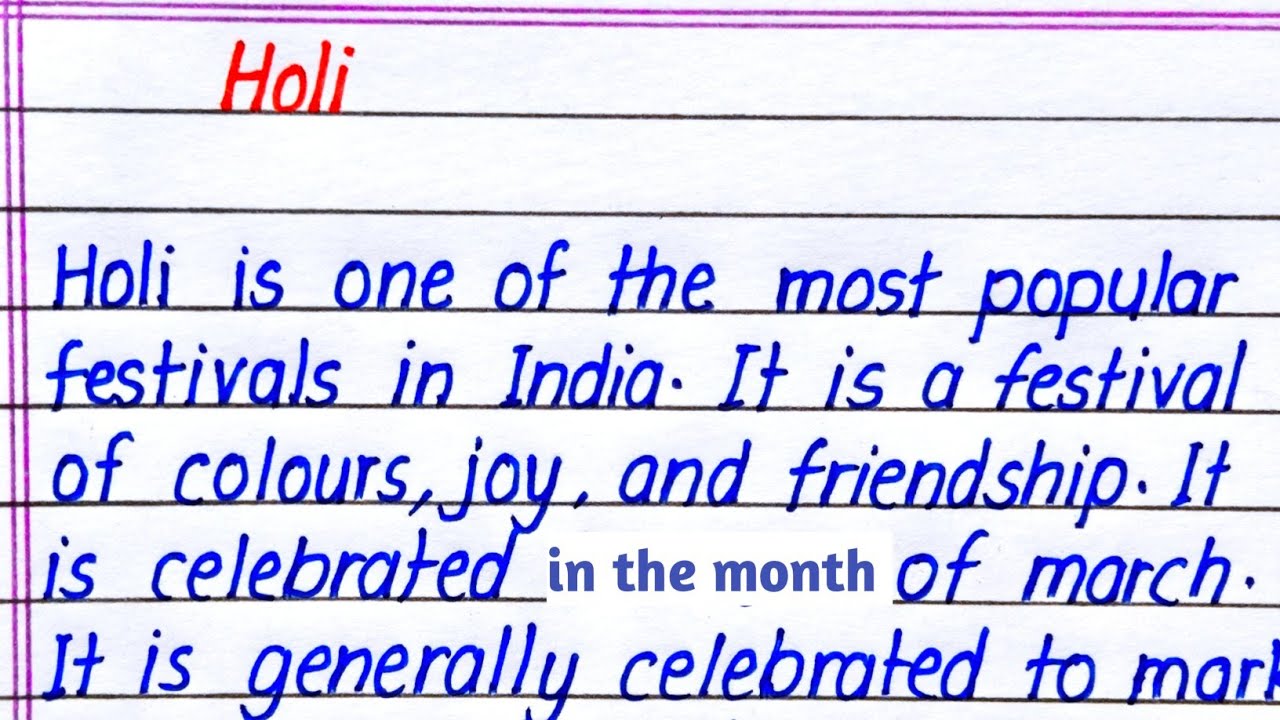 Holi
Holi is one of the most popular
festivals in India. It is a festival
of colours, joy, and friendship. It
is celebrated in the month of march.
It is generally celebrated to mark